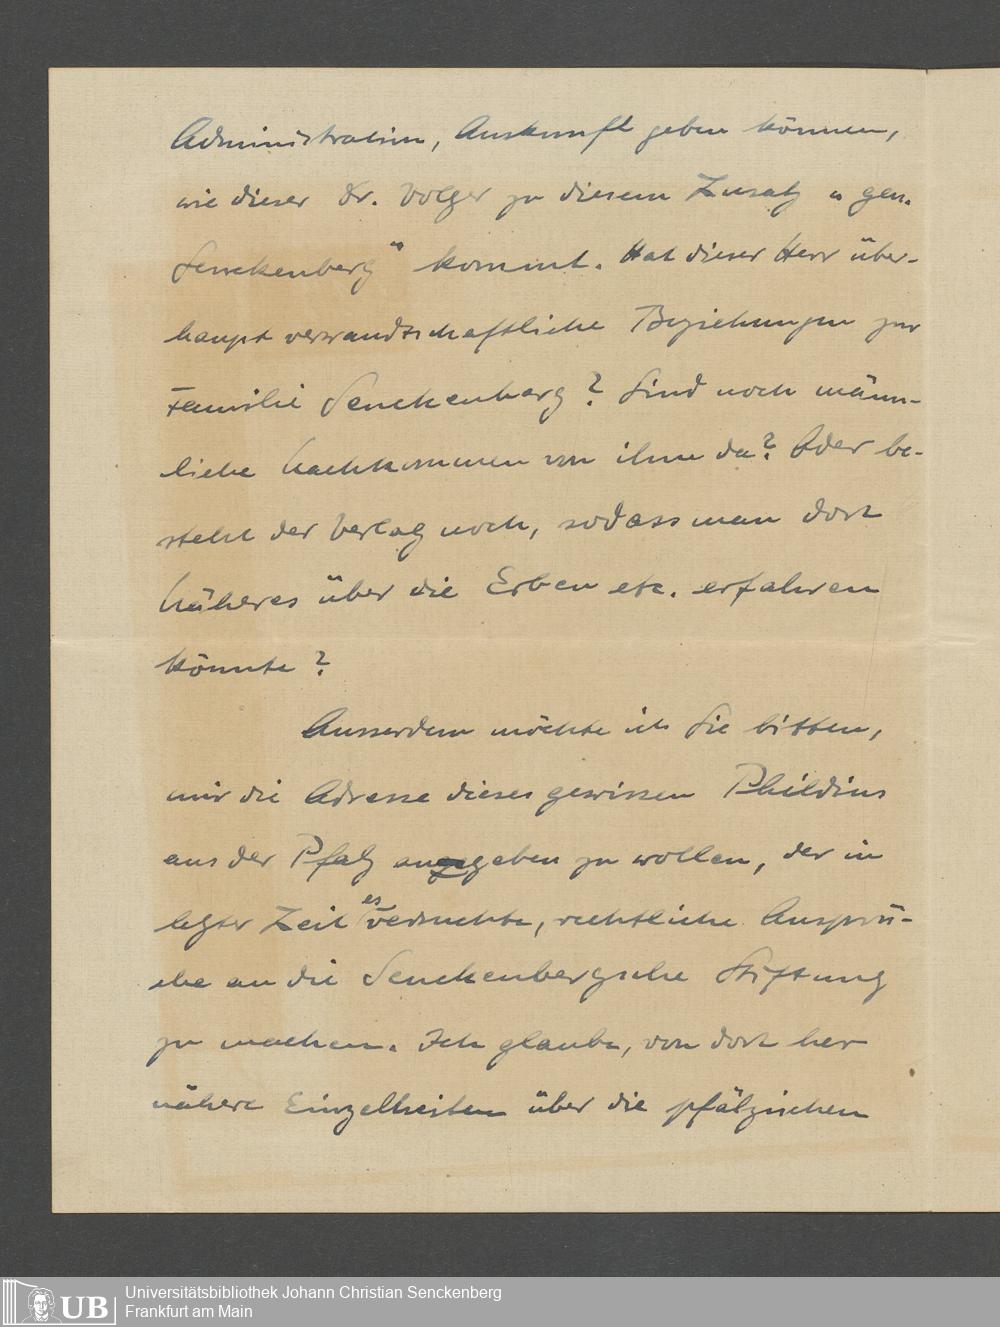 Administration, Auskunft geben können,
wie dieser Dr. Volger zu diesem Zusatz „ gen.
Senckenberg“ kommt. Hat dieser Herr über-
haupt verwandtschaftliche Beziehungen zur
Familie Senckenberg? Sind noch männ-
liche Nachkommen von ihm da? Oder be-
steht der Verlag noch, sodass man dort
Näheres über die Erben etc. erfahren
könnte?
Ausserdem möchte ich Sie bitten,
mir die Adresse dieses gewissen Phildius
aus der Pfalz angeben zu wollen, der in
letzter Zeit es versuchte, rechtliche Ansprü-
che an die Senckenbergsche Stiftung
zu machen. Ich glaube, von dort her
nähere Einzelheiten über die pfälzischen
UB
Universitätsbibliothek Johann Christian Senckenberg
Frankfurt am Main